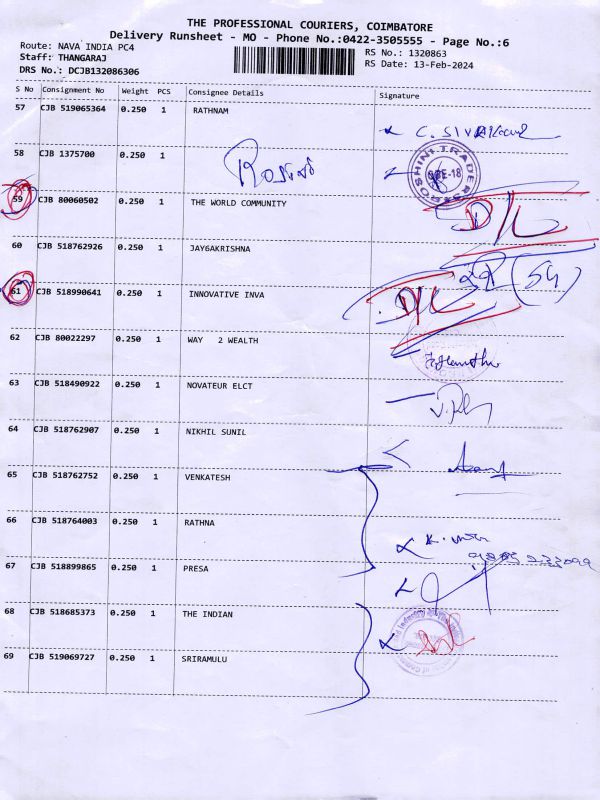 THE PROFESSIONAL COURIERS, COIMBATORE
Delivery Runsheet - MO - Phone No.:0422-3505555 - Page No.:6
Route: NAVA INDIA PC4
RS No.: 1320863
Staff: THANGARAJ
RS Date: 13-Feb-2024
DRS No.: DCJB132086306
S No Consignment No Weight PCS Consignee Details Signature
57 CJB 519065364 0.250 1 RATHNAM
58 CJB 1375700 0.250 1
59 CJB 80060502 0.250 1 THE WORLD COMMUNITY D/L
60 CJB 518762926 0.250 1 JAY6AKRISHNA
61 CJB 518990641 0.250 1 INNOVATIVE INVA D/L
62 CJB 80022297 0.250 1 WAY 2 WEALTH
63 CJB 518490922 0.250 1 NOVATEUR ELCT
64 CJB 518762907 0.250 1 NIKHIL SUNIL
65 CJB 518762752 0.250 1 VENKATESH
66 CJB 518764003 0.250 1 RATHNA
67 CJB 518899865 0.250 1 PRESA
68 CJB 518685373 0.250 1 THE INDIAN
69 CJB 519069727 0.250 1 SRIRAMULU